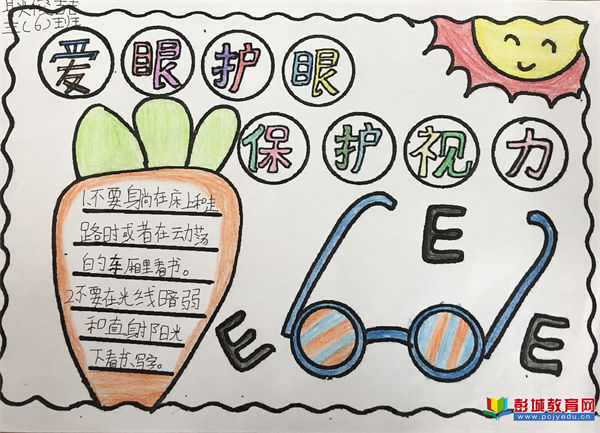 (6)班
爱眼护眼
保护视力
1.不要躺在床上和走
路时或者在动荡
的车厢里看书。
2.不要在光线暗弱
和直射阳光
下看书、写字。
E
E
E
彭城教育网
www.pcjyedu.cn